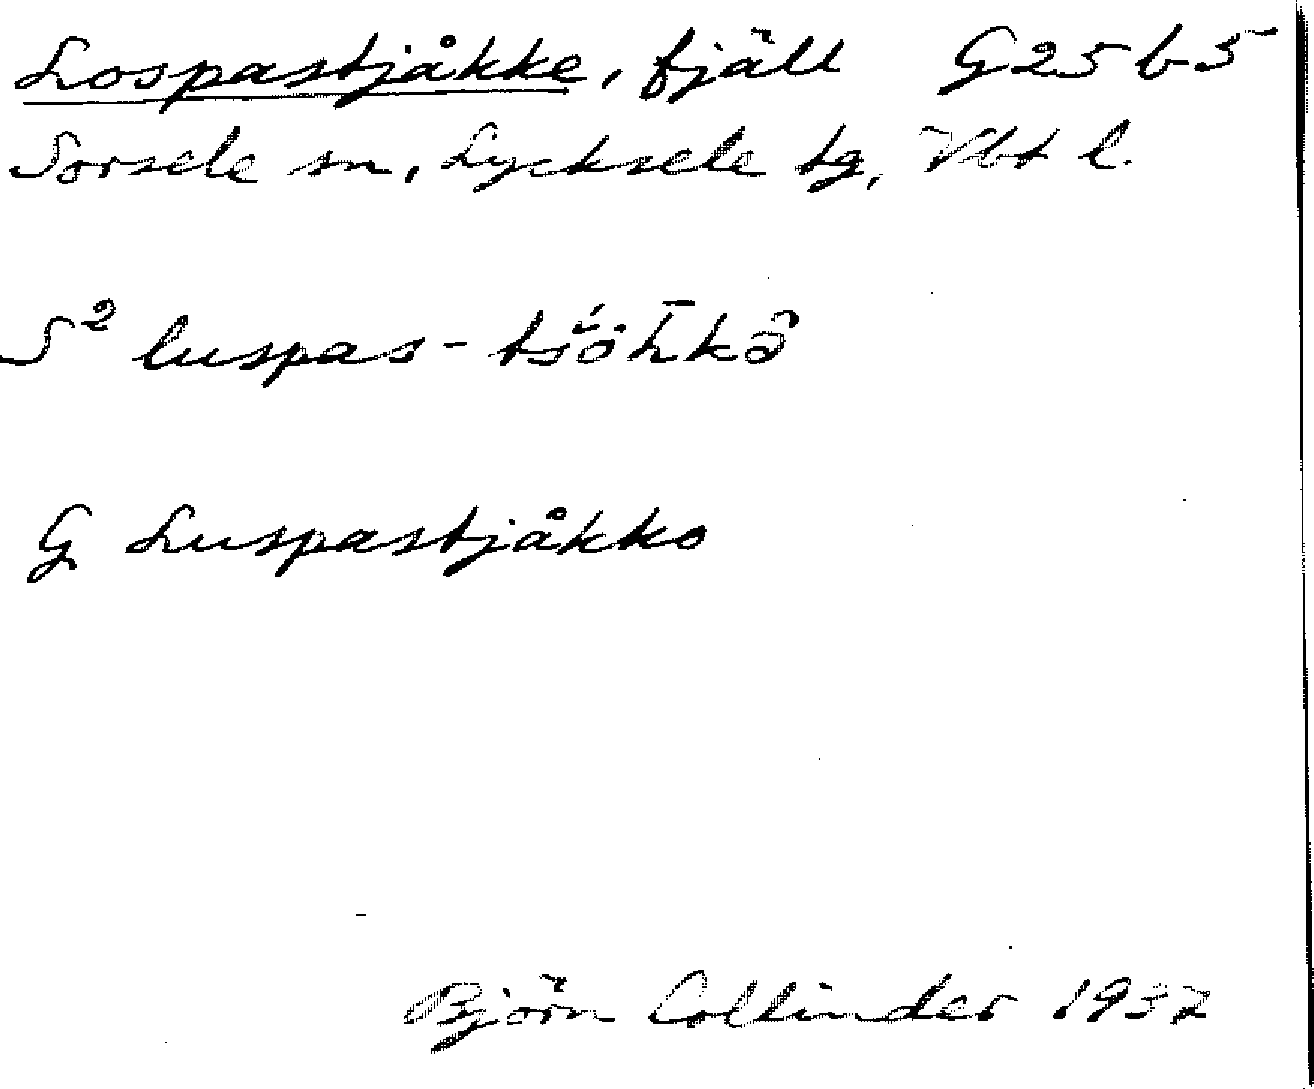 Lospastjåkke, fjäll G25b5
Sorsele sn, Lycksele tg, Vbt l.
S² luspas-tśȯh̄kə̂
G Luspastjåkko
Björn Collinder 1937